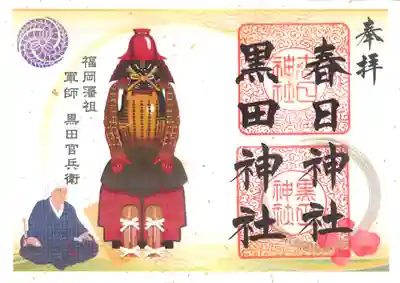 奉拝
春日神社
黒田神社
福岡藩祖
軍師 黒田官兵衛